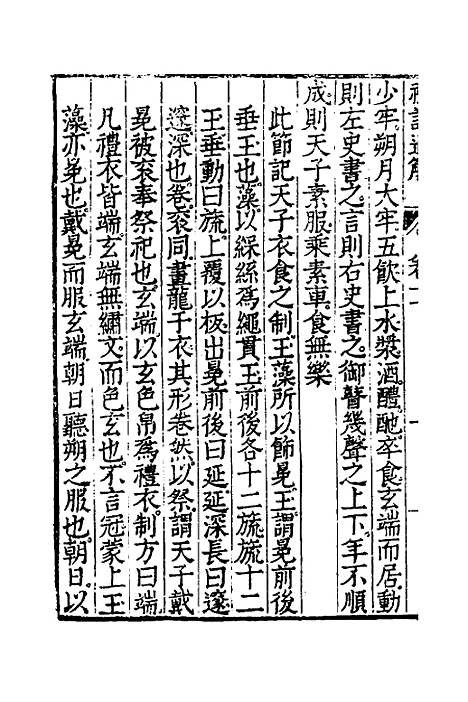 少牢。朔月大牢五飲上水漿酒醴酏。卒食玄端而居動
則左史書之。言則右史書之。御瞽幾聲之上下。年不順
成則天子素服乘素車食無樂
此節記天子衣食之制。玉藻所以節冕玉。謂冕前後
垂玉也。藻以綵絲為繩貫玉前後各十二旒旒十二
玉垂動曰旒上覆以板出冕前後曰延延深長曰邃
邃深也。卷袞同畫龍于衣其形卷然以祭。謂天子戴
冕被袞奉祭祀也。玄端以玄色帛為禮衣。制方曰端
凡禮衣皆端玄端無繡文而色玄也。不言冠蒙上玉
藻亦冕也。戴冕而服玄端朝日聽朔之服也。朝日。以